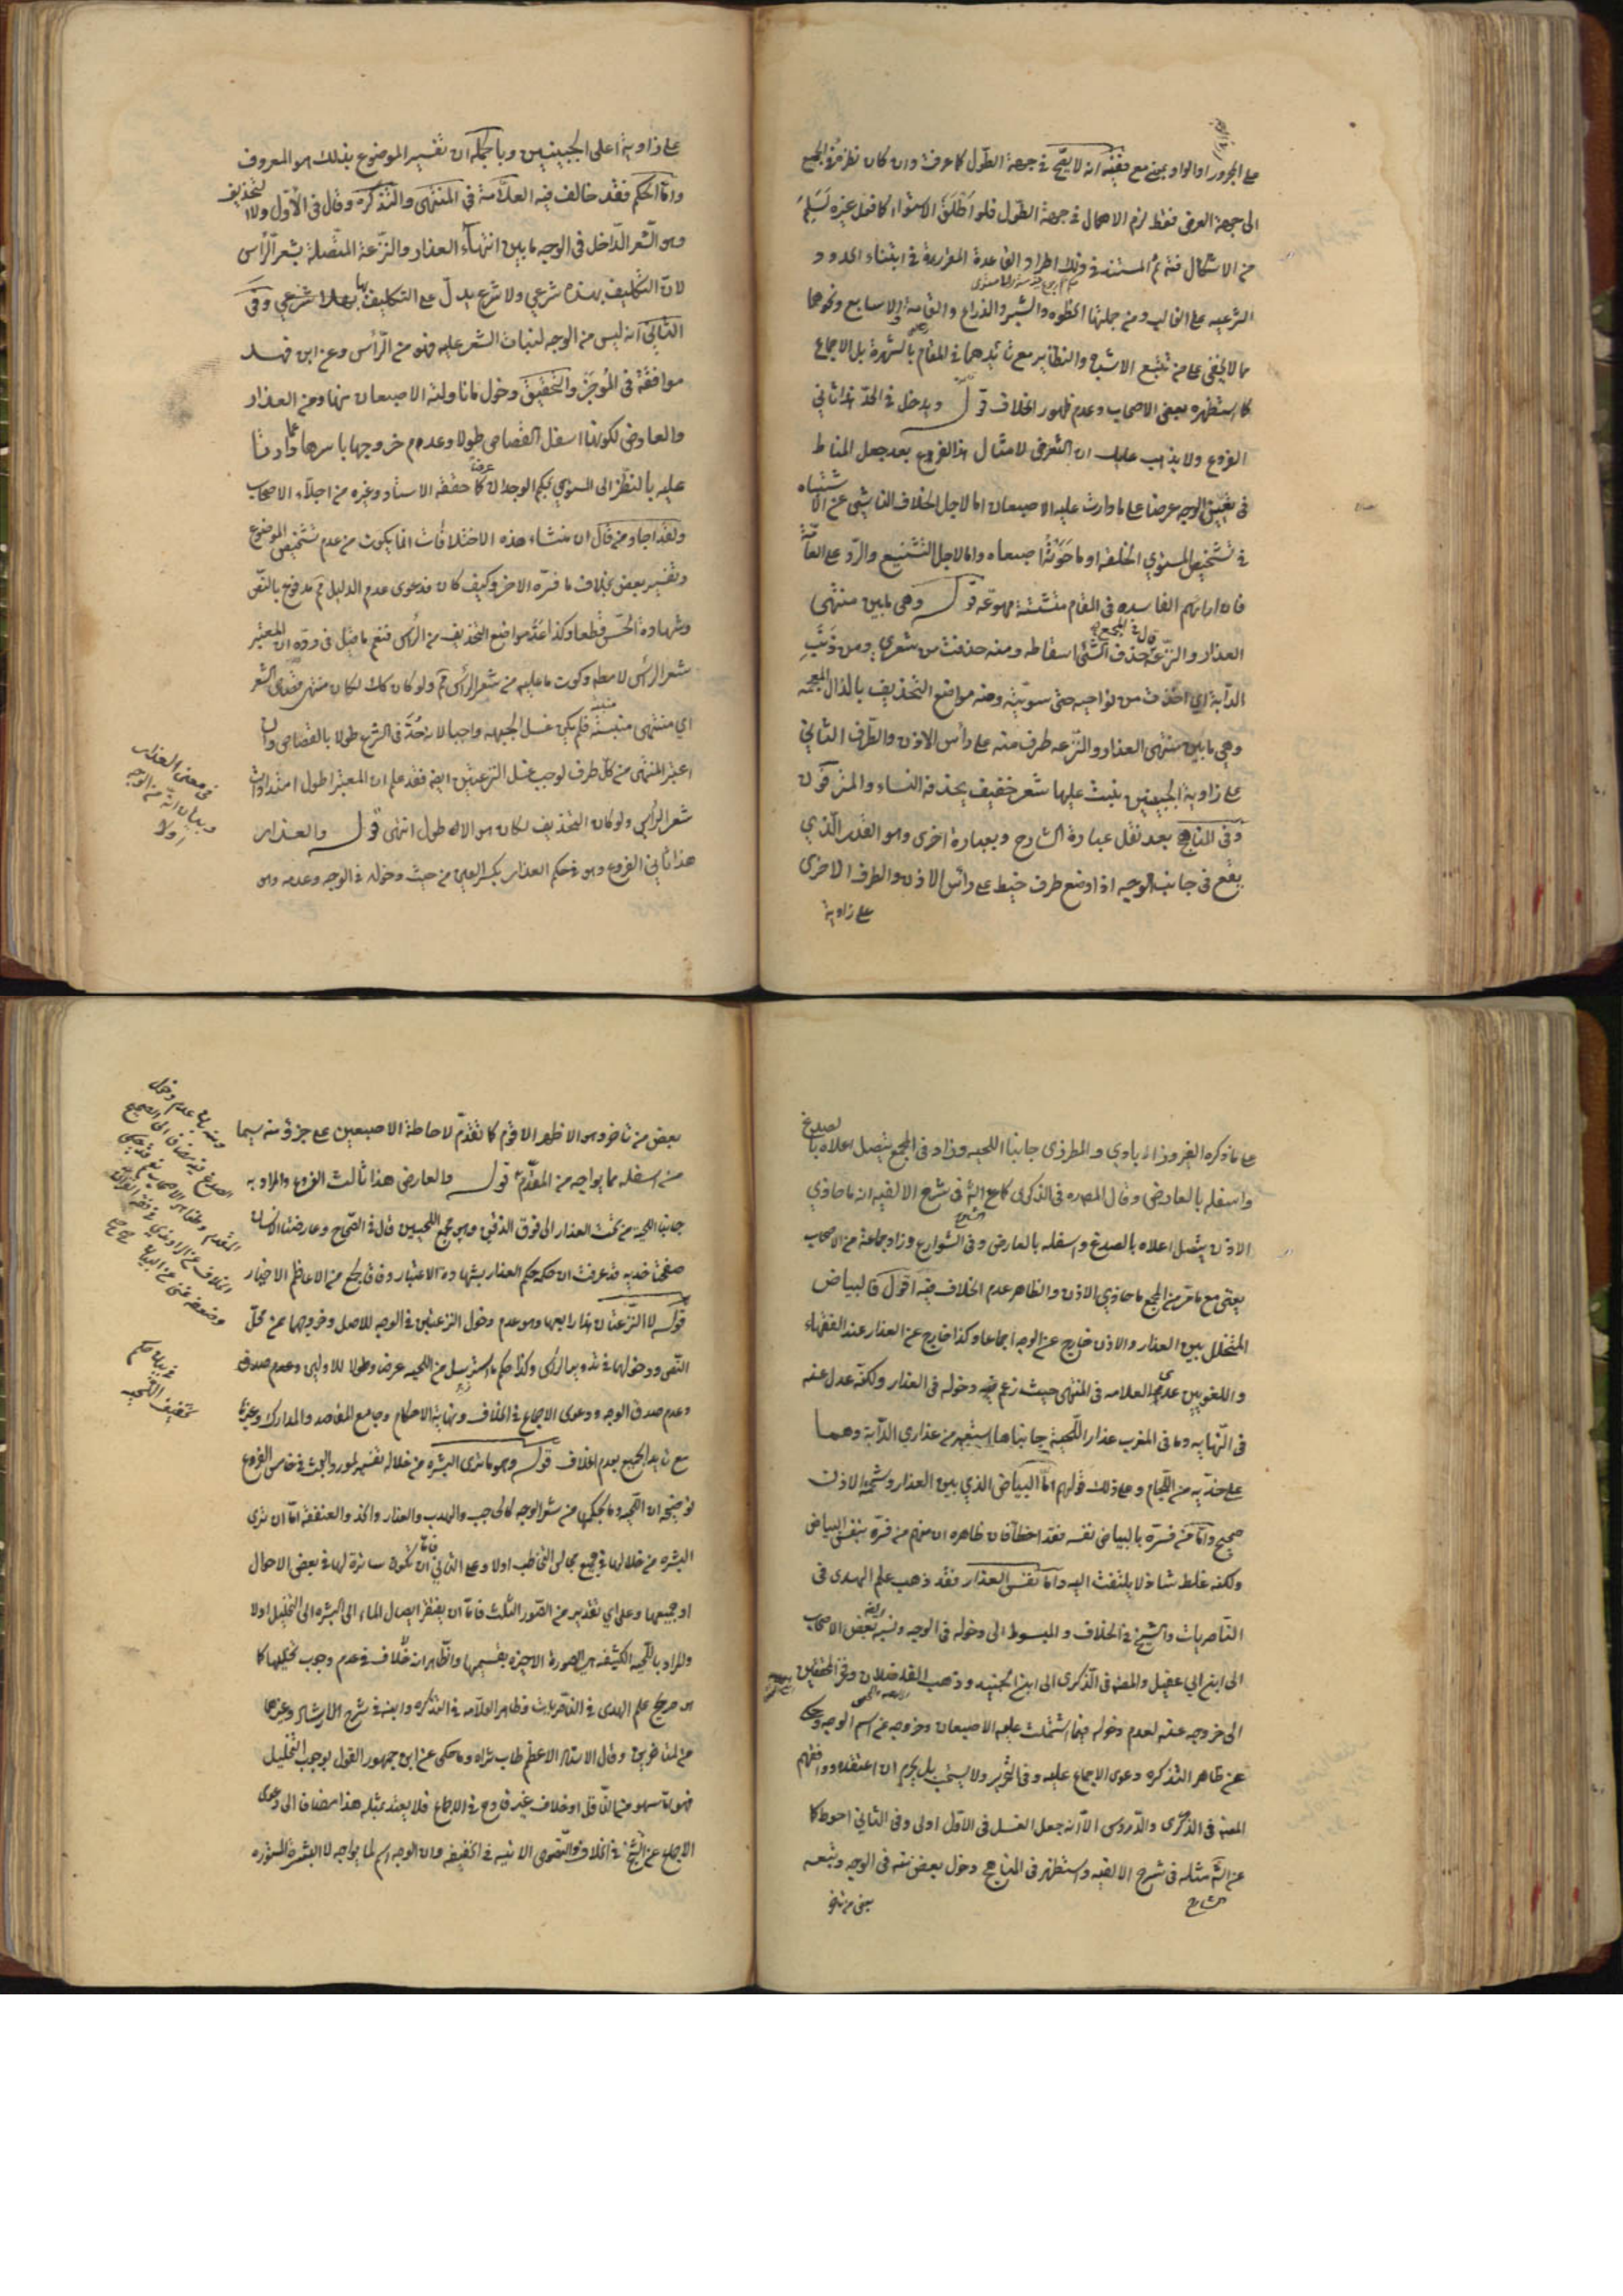 على المجرور او الواو بمعنى مع ففيه انه لا يصح في جهة الطول كما عرفت وان كان نظره في الجميع
الى جهة العرض فقط لزم الاهمال في جهة الطول فلو اطلق الاستواء كما فعل غيره لسلم
من الاشكال فتم المستند في ذلك اطراد القاعدة المقررة في ابتناء الحدود
الشرعيه على الغالب ومن جملتها الخطوه والشبر والذراع والقامة والاصابع ونحوهما
مما لا يخفى على من تتبع الاشباه والنظاير مع تايدهما في المقام بالشهرة بل الاجماع
كما استظهره بعض الاصحاب وعدم ظهور الخلاف قوله ويدخل في الحد هذا ثاني
الفروع ولا يذهب عليك ان التعرض لامثال هذا الفروع بعد جعل المناط
في تعيين الوجه عرضا على ما دارت عليه الاصبعان اما لاجل الخلاف الناشي عن الاشتباه
في تشخيص المستوي الخلقة او ما حوته اصبعاه واما لاجل التشنيع والرد على العامة
فان اراءهم الفاسده في المقام متشتتة مهوعه قوله وهي ما بين منتهى
العذار والنزعة حذف الشئ اسقاطه ومنه حذفت من شعري ومن ذنب
الدابة اي اخذت من نواحيه حتى سويته ومنه مواضع التحذيف بالذال المعجمه
وهي ما بين منتهى العذار والنزعه طرف منه على رأس الاذن والطرف الثاني
على زاوية الجبينين ينبت عليها شعر خفيف يحذفه النساء والمترفون
وفي المناهج بعد نقل عبارة الشارح وبعبارة اخرى وهو القدر الذي
يقع في جانب الوجه اذا وضع طرف خيط على رأس الاذن والطرف الاخرى
على زاوية
على زاوية اعلى الجبينين وبالجملة ان تفسير الموضوع بذلك هو المعروف
واما الحكم فقد خالف فيه العلامة في المنتهى والتذكره وقال في الأول ولا التحذيف
وهو الشعر الداخل في الوجه ما بين انتهاء العذار والنزعة المتصلة بشعر الرأس
لان التكليف بهذه شرعي ولا شرع يدل على التكليف بها شرعي وفي
الثاني انه ليس من الوجه لنبات الشعر عليه فهو من الرأس وعن ابن فهد
موافقة في الموجز والتحقيق دخول ما ناولته الاصبعان منها ومن العذار
والعارض لكونها اسفل القصاص طولا وعدم خروجها باسرها عما دارتا
عليه بالنظر الى المستوي بحكم الوجدان كما حققه الاستاد وغيره من اجلاء الاصحاب
ولقد اجاد من قال ان منشاء هذه الاختلافات انما يكون من عدم تشخيص الموضوع
وتفسير بعض بخلاف ما فسره الاخر وكيف كان فدعوى عدم الدليل ثم مدفوع بالنص
وشهادة الحس قطعا وكذا عد مواضع التحذيف من الرأس فنعم ما قيل في رده ان المعتبر
شعر الرأس لا مطه وكون ما عليه من شعر الرأس ثم ولو كان كك لكان منتهى الشعر
اي منتهى منبته فلم يكن غسل الجبهه واجبا لانه حد في الشرع طولا بالقصاص وان
اعتبر المنتهى من كل طرف لوجب غسل النزعتين ايضه فقد علم ان المعتبر اطول امتدادات
شعر الرأس ولو كان التحذيف لكان هو الاطول انتهى قوله والعذار
هذا ثاني الفروع وهو في حكم العذار بكسر العين من حيث دخوله في الوجه وعدمه وهو
في معنى العذار
وبيان انه من الوجه
او لا
على ما ذكره الفيروزابادي والمطرزي جانبا اللحيه وزاد في المجمع يتصل اعلاه بالصدغ
واسفله بالعارض وقال المصره في الذكرى كما عن الثه في شرح الالفيه انه ما حاذى
الاذن يتصل اعلاه بالصدغ واسفله بالعارض وفي الشوارع وزاد جماعة من الاصحاب
يعنى مع ما مر من المجمع ما حاذى الاذن والظاهر عدم الخلاف فيه اقول فالبياض
المتخلل بين العذار والاذن خارج عن الوجه اجماعا وكذا خارج عن العذار عند الفقهاء
واللغويين عدى العلامه في المنتهى حيث زعم دخوله في العذار ولكنه عدل عنه
في النهايه وما في المغرب عذار اللحية جانباها استعير من عذاري الدابة وهما
على خديه من اللجام وعلى ذلك قولهم اما البياض الذي بين العذار وشحمة الاذن
صحيح واما من فسره بالبياض نفسه فقد اخطأ فان ظاهره ان منهم من فسره بنفس البياض
ولكنه غلط شاذ لا يلتفت اليه واما نفس العذار فقد ذهب علم الهدى في
الناصريات والشيخ في الخلاف و المبسوط الى دخوله في الوجه ونسبه بعض الاصحاب
الى ابن ابي عقيل والمصه في الذكرى الى ابن الجنيد وذهب الفاضلان وفخر المحققين
الى خروجه عنه لعدم دخوله فيما اشتملت عليه الاصبعان وخروجه عن اسم الوجه وحكى
عن ظاهر التذكره دعوى الاجماع عليه وفي التحرير ولا يستحب بل يحرم ان اعتقده ووافقهم
المصه في الذكرى والدروس الا انه جعل الغسل في الأول اولى وفي الثاني احوط كما
عن الثه مثله في شرح الالفيه واستظهر في المناهج دخول بعض منه في الوجه وتبعه
بعض من تاخر
بعض من تاخر وهو الاظهر الاقوم كما تقدم لاحاطة الاصبعين على جزؤ منه سيما
من اسفله مما يواجه من المقدم قوله والعارض هذا ثالث الفروع والمراد به
جانبا اللحية من تحت العذار الى فوق الذقن وهو مجمع اللحيين قال في الصحاح وعارضتا الانسان
صفحتا خديه قد عرفت ان حكمه حكم العذار بشهادة الاعتبار وفاقا لجمع من الاعاظم الاخيار
قوله لا النزعتان هذا رابعها وهو عدم دخول النزعتين في الوجه للاصل وخروجهما عن محل
النص ودخولهما في تدوير الرأس وكذا حكم ما استرسل من اللحيه عرضا وطولا للاولين وعدم صدق
وعدم صدق الوجه ودعوى الاجماع في الخلاف ونهاية الاحكام وجامع المقاصد والمدارك وغيرها
مع تايد الجميع بعدم الخلاف قوله وهو ما ترى البشره من خلاله تفسير لمورد البحث في خامس الفروع
توضيحه ان اللحيه وما بحكمها من شعر الوجه كالحاجب والهدب والعذار والخد والعنفقه اما ان ترى
البشره من خلالها في جميع مجالس التخاطب اولا وعلى الثاني فاما ان تكون ساترة لها في بعض الاحوال
او جميعها وعلى اي تقدير من الصور الثلث فاما ان يفتقر ايصال الماء الى البشره الى التخليل اولا
والمراد باللحيه الكثيفه هي الصورة الاخيره بقسميها والظاهر انه لا خلاف في عدم وجوب تخليلها كما
هو صريح علم الهدى في الناصريات وظاهر العلامه في التذكره وابنه في شرح الارشاد وغيرهما
من المتاخرين وقال الاستاد الاعظم طاب ثراه وما حكى عن ابن جمهور القول بوجوب التخليل
فهو سهو من الناقل او خلاف غير قادح في الاجماع فلا يعتد بمثله هذا مضافا الى دعوى
الاجماع عن الشيخ في الخلاف والنصوص الاتيه في الخفيفه وان الوجه اسم لما يواجه لا البشرة المستوره
في بيان حكم
تخفيف اللحيه